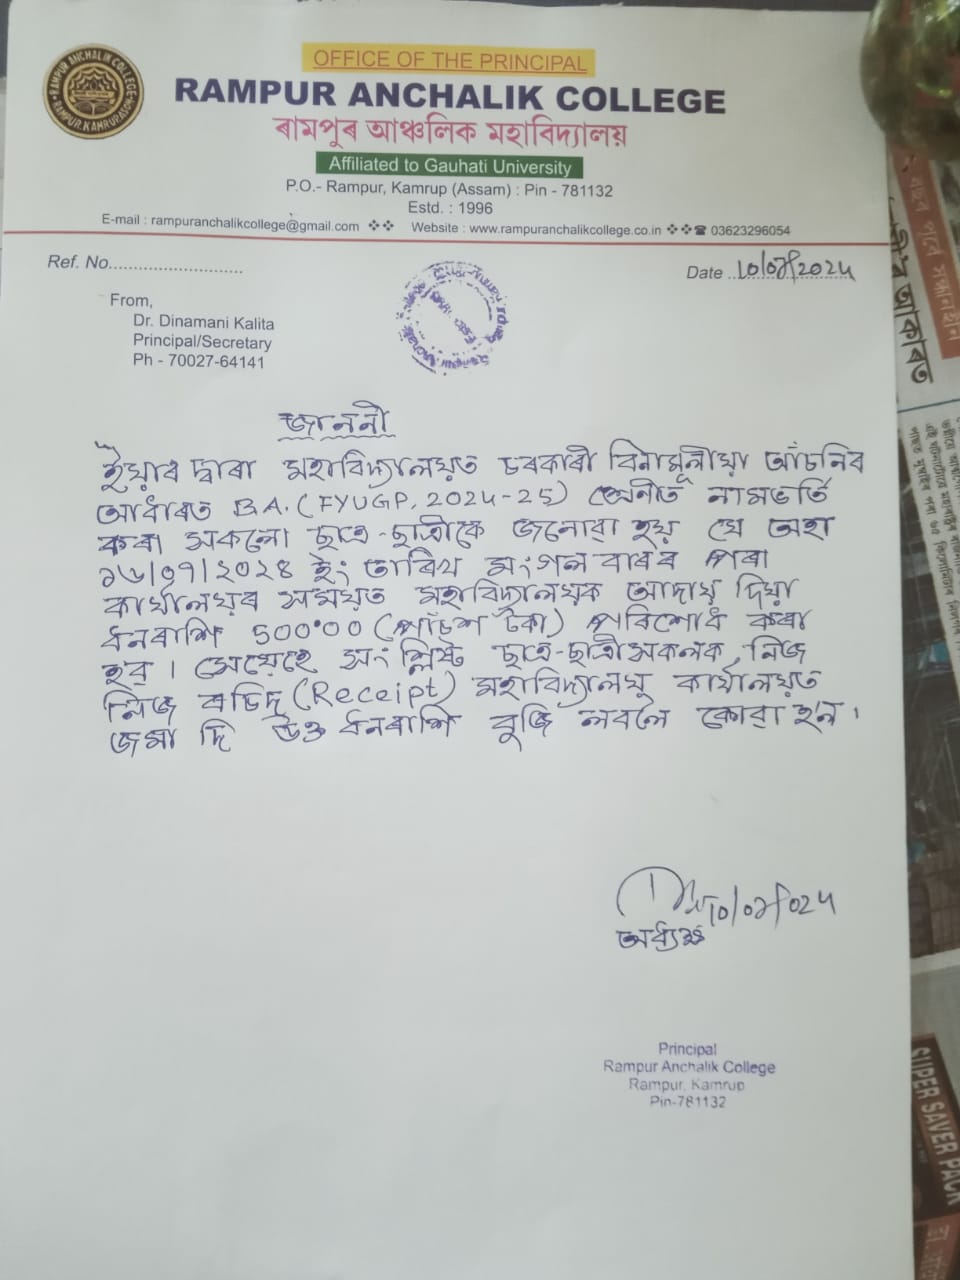 OFFICE OF THE PRINCIPAL
RAMPUR ANCHALIK COLLEGE
ৰামপুৰ আঞ্চলিক মহাবিদ্যালয়
Affiliated to Gauhati University
P.O.- Rampur, Kamrup (Assam) : Pin - 781132
Estd. : 1996
E-mail : rampuranchalikcollege@gmail.com ❖❖ Website : www.rampuranchalikcollege.co.in ❖❖☎ 03623296054
Ref. No.............................
Date ..10/07/2024
From,
Dr. Dinamani Kalita
Principal/Secretary
Ph - 70027-64141
জাননী
ইয়াৰ দ্বাৰা মহাবিদ্যালয়ত চৰকাৰী বিনামূলীয়া আঁচনিৰ
আধাৰত B.A. (FYUGP, 2024-25) শ্ৰেনীত নামভৰ্তি
কৰা সকলো ছাত্ৰ-ছাত্ৰীকে জনোৱা হয় যে অহা
১৬/০৭/২০২৪ ইং তাৰিখ মংগলবাৰৰ পৰা
কাৰ্যালয়ৰ সময়ত মহাবিদ্যালয়ক আদায় দিয়া
ধনৰাশি 500.00 (পাঁচশ টকা) পৰিশোধ কৰা
হব। সেয়েহে সংশ্লিষ্ট ছাত্ৰ-ছাত্ৰীসকলক নিজ
নিজ ৰচিদ (Receipt) মহাবিদ্যালয় কাৰ্যালয়ত
জমা দি উক্ত ধনৰাশি বুজি লবলৈ কোৱা হ'ল।
10/07/2024
অধ্যক্ষ
Principal
Rampur Anchalik College
Rampur, Kamrup
Pin-781132
SUPER SAVER PACK